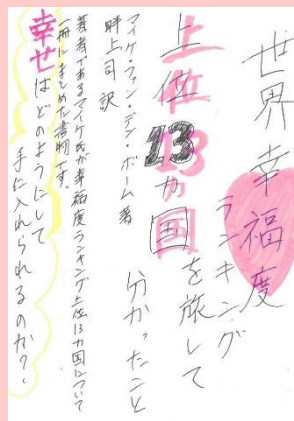 世界幸福度
ランキング
上位13カ国
を旅して
分かったこと
マイケ・ファン・デン・ボーム著
畔上司 訳
著者であるマイケ氏が幸福度ランキング上位13カ国について
一冊にまとめた書物です。
幸せはどのようにして
手に入れられるのか?